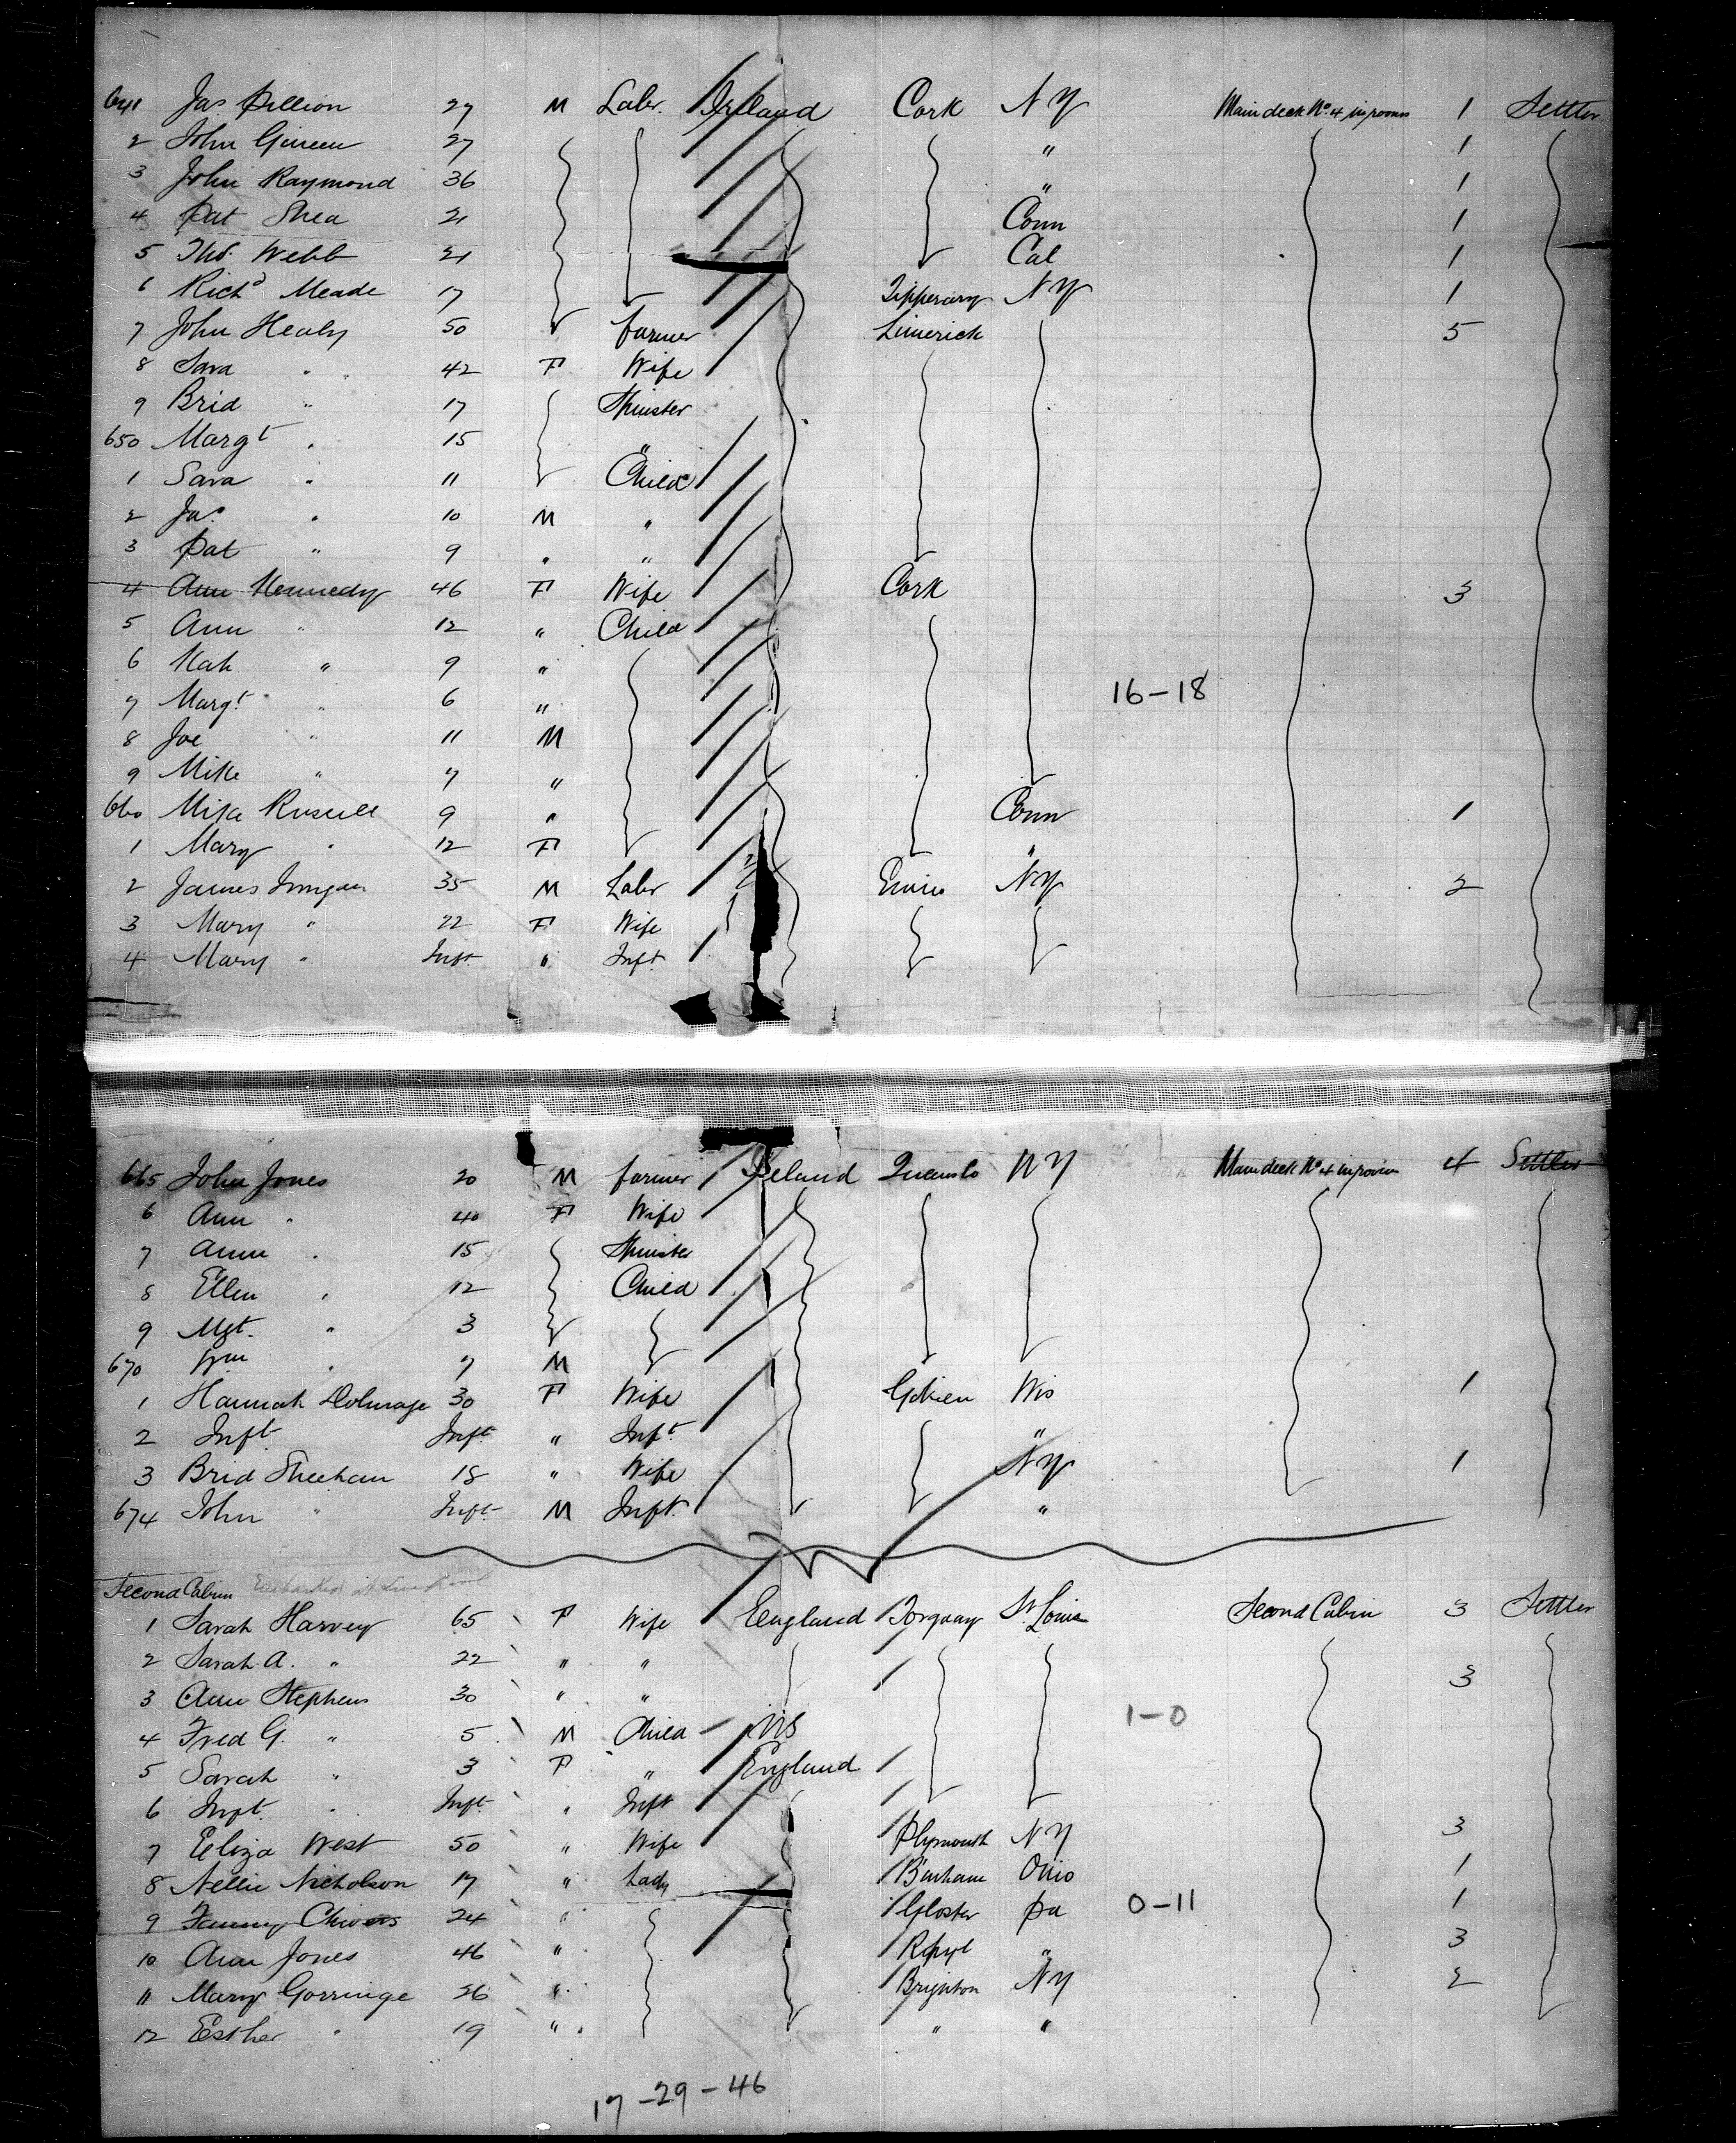 641 Jas Dillion 27 M Labr. Ireland Cork NY Main deck No. 4, in rooms 1 Settler
2 John 27 " 1
3 John Raymond 36 " 1
4 Pat Shea 21 Conn 1
5 Thos. Webb 21 Cal 1
6 Richd Meade 17 Tipperary NY 1
7 John Healy 50 farmer Limerick 5
8 Sara " 42 F Wife
9 Brid " 17 Spinster
650 Margt " 15 "
1 Sara " 11 Child
2 Jas. " 10 M "
3 Pat " 9 " "
4 Ann Kennedy 46 F Wife Cork 3
5 Ann " 12 " Child
6 Kah " 9 "
7 Margt. " 6 "
16-18
8 Joe " 11 M
9 Mike " 7 "
660 Mike Russell 9 " Conn 1
1 Mary " 12 F "
2 James 35 M Labr Ennis NY 2
3 Mary " 22 F Wife
4 Mary " Inft. " Inft.
665 John Jones 20 M farmer Ireland NY Main deck No 4 in rooms 4 Settler
6 Ann " 40 F Wife
7 Ann " 15 Spinster
8 Ellen " 12 Child
9 Mgt. " 3
670 Wm " 7 M
1 Hannah Dolmage 30 F Wife Wis 1
2 Inft. Inft. " Inft. "
3 Brid Sheehan 18 " Wife NY 1
674 John " Inft. M Inft. "
Second Cabin Embarked at Liverpool
1 Sarah Harvey 65 F Wife England Torquay St Louis Second Cabin 3 Settler
2 Sarah A. " 22 " " 3
3 Ann Stephens 30 " "
4 Fred G. " 5 M Child US 1-0
5 Sarah " 3 F " England
6 Inft. " Inft. " Inft
7 Eliza West 50 " Wife Plymouth NY 3
8 Nellie Nicholson 17 " Lady Ohio 1
9 Fanny Chivers 24 " Gloster Pa 0-11 1
10 Ann Jones 46 " " 3
11 Mary Gorringe 26 " Brighton NY 2
12 Esther " 19 " " "
17-29-46